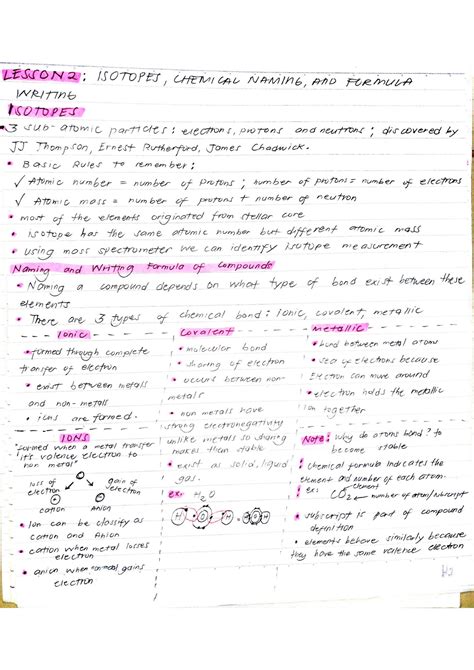 LESSON 2: ISOTOPES, CHEMICAL NAMING, AND FORMULA
WRITING
ISOTOPES
• 3 sub-atomic particles: electrons, protons and neutrons; discovered by
JJ Thompson, Ernest Rutherford, James Chadwick.
• Basic Rules to remember:
✓ Atomic number = number of protons; number of protons = number of electrons
✓ Atomic mass = number of protons + number of neutron
• most of the elements originated from stellar core
• Isotope has the same atomic number but different atomic mass
• using mass spectrometer we can identify isotope measurement
Naming and Writing Formula of Compounds
• Naming a compound depends on what type of bond exist between these
elements
• There are 3 types of chemical bond: Ionic, covalent, metallic
Ionic
• formed through complete
transfer of electron
• exist between metals
and non-metals
• ions are formed.
IONS
"formed when a metal transfer
it's valence electron to
non metals"
loss of
electron
gain of
electron
cation
Anion
• Ion can be classify as
cation and Anion
• cation when metal losses
electron
• anion when gains
electron
Covalent
• molecular bond
• sharing of electron
• occurs between non-
metals
• non metals have
strong electronegativity
unlike metals so sharing
makes them stable
• exist as solid, liquid
gas.
ex: H₂O
H O H H O H
Metallic
• bond between metal atoms
• sea of electrons because
Electron can move around
• electron holds the metallic
Ion together
Note: Why do atoms bond? to
become stable
• Chemical formula indicates the
element and number of each atom.
ex: element
CO₂ number of atom/subscript
• subscript is part of compound
definition
• elements behave similarly because
they have the same valence electron